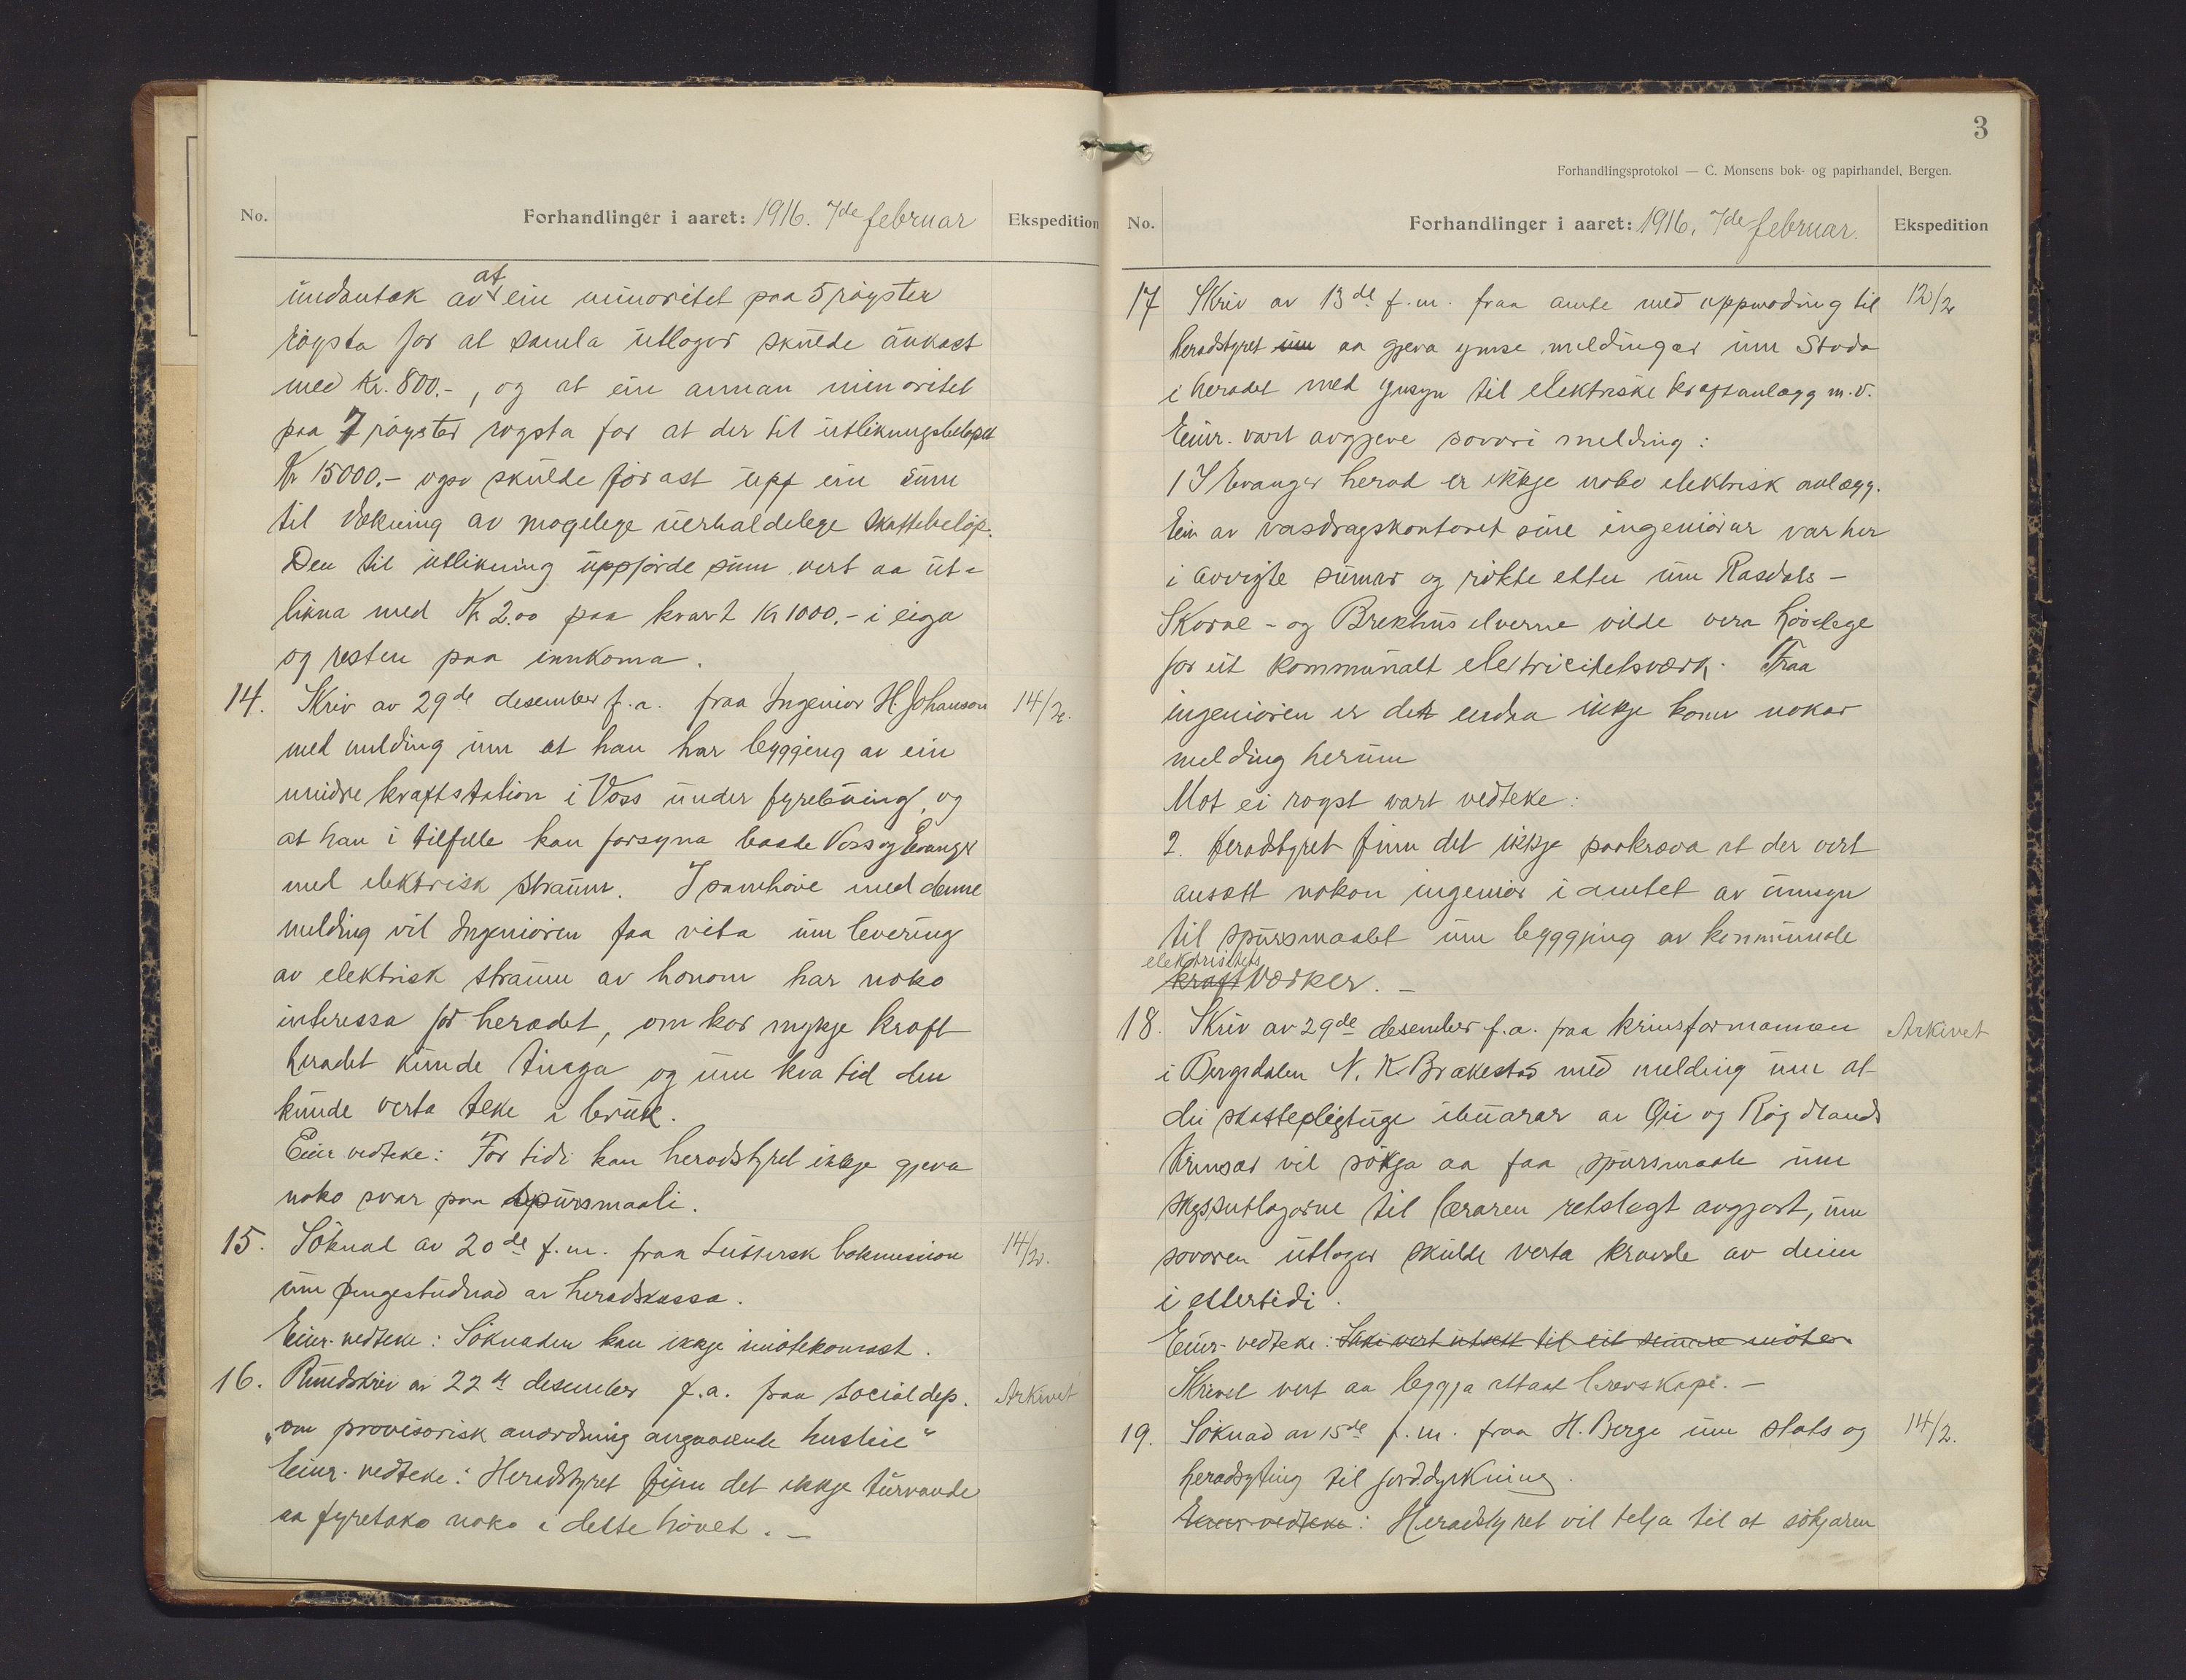 No.
Forhandlinger i aaret: 1916. 7de februar
Ekspedition
undantak av at ein minoritet paa 5 röyster
röysta for at samla utlogor skulde aukast
med Kr. 800.-, og at ein annan minoritet
paa 7 röyster röysta for at der til utlikningsbelöpet
Kr 15000.- ogso skulde förast upp ein sum
til dekning av mogelege uerhaldelege skattebelöp.
Den til utlikning uppförde sum vert aa ut-
likna med Kr 2.00 paa kvart Kr 1000.- i eiga
og resten paa innkoma.
14. Skriv av 29de desember f.a. fraa Ingeniör H. Johanson 14/2.
med melding um at han har byggjing av ein
mindre kraftstation i Voss under fyrebuing, og
at han i tilfelle kan forsyna baade Voss og Evanger
med elektrisk straum. I samhöve med denne
melding vil Ingeniören faa vita um levering
av elektrisk straum av honom har noko
interessa for heradet, om kor mykje kraft
heradet kunde tinga og um kva tid den
kunde verta teke i bruk.
Einr. vedteke: For tidi kan heradstyret ikkje gjeva
noko svar paa spursmaali.
15. Söknad av 20de f.m. fraa Luthersk bokmision 14/2.
um pengestudnad av heradskassa.
Einr. vedteke: Söknaden kan ikkje imötekomast.
16. Rundskriv av 22de desember f.a. fraa Socialdep. Arkivet
"om provisorisk anordning angaaende husleie"
Einr. vedteke: Heradstyret finn det ikkje turvande
aa fyretaka noko i dette hövet. -
3
Forhandlingsprotokol — C. Monsens bok- og papirhandel, Bergen.
No.
Forhandlinger i aaret: 1916, 7de februar.
Ekspedition
17 Skriv av 13de f.m. fraa amte med uppmoding til 12/2
heradstyret um aa gjeva ymse meldingar um Stoda
i heradet med ynsyn til elektriske kraftanlægg m.v.
Einr. vart avgjeve sovori melding:
1 I Evanger herad er ikkje noko elektrisk anlægg.
Ein av vasdragskontoret sine ingeniörar var her
i avvigte sumar og rökte etter um Rasdals-
Skorve- og Brekhus elverne vilde vera hövelege
for eit kommunalt electricitetsværk. Fraa
ingeniören er det endaa ikkje kome nokor
melding herum
Mot ei röyst vart vedteke:
2. Heradstyret finn det ikkje paakrava at der vert
ansætt nokon ingeniör i amtet av umsyn
til spursmaalet um byggjing av kommunale
elektrisitets
kraft værker. -
18. Skriv av 29de desember f.a. fraa krinsformannen Arkivet
i Bergsdalen N. K. Brækestad med melding um at
dei skattepligtuge ibuarar av Öii og Röydlands
krinsar vil sökja aa faa spursmaale um
skyssutlogorne til læraren retslegt avgjort, um
sovoren utlogor skulde verta kravde av deim
i ettertidi.
Einr. vedteke: Saki vert utsett til eit seinare möte.
Skrivet vert aa leggja attaat brevskapi. -
19. Söknad av 15de f.m. fraa H. Berge um stats og 14/2.
heradsyting til jorddyrkning.
Einr. vedteke: Heradstyret vil telja til at sökjaren